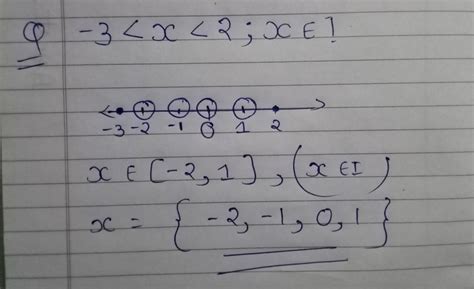 Q -3 < x < 2 ; x ∈ I
-3 -2 -1 0 1 2
x ∈ [-2, 1] , (x ∈ I)
x = { -2, -1, 0, 1 }